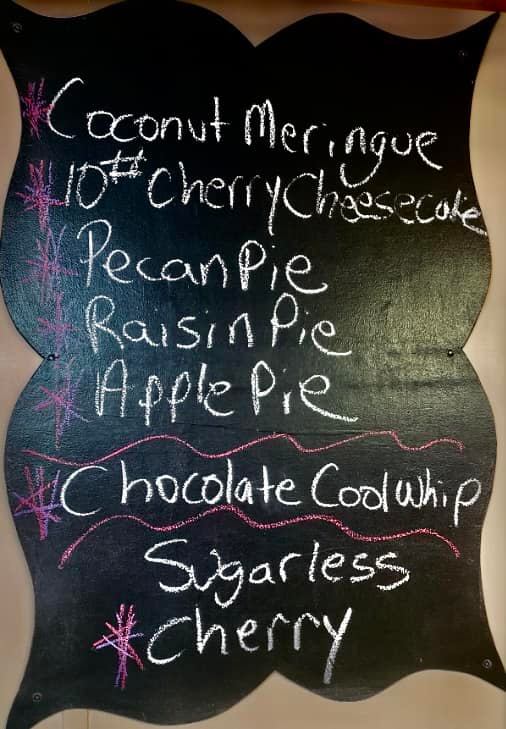 * Coconut Meringue
* 10# Cherry Cheesecake
* Pecan Pie
* Raisin Pie
* Apple Pie
* Chocolate Cool Whip
Sugarless
* Cherry